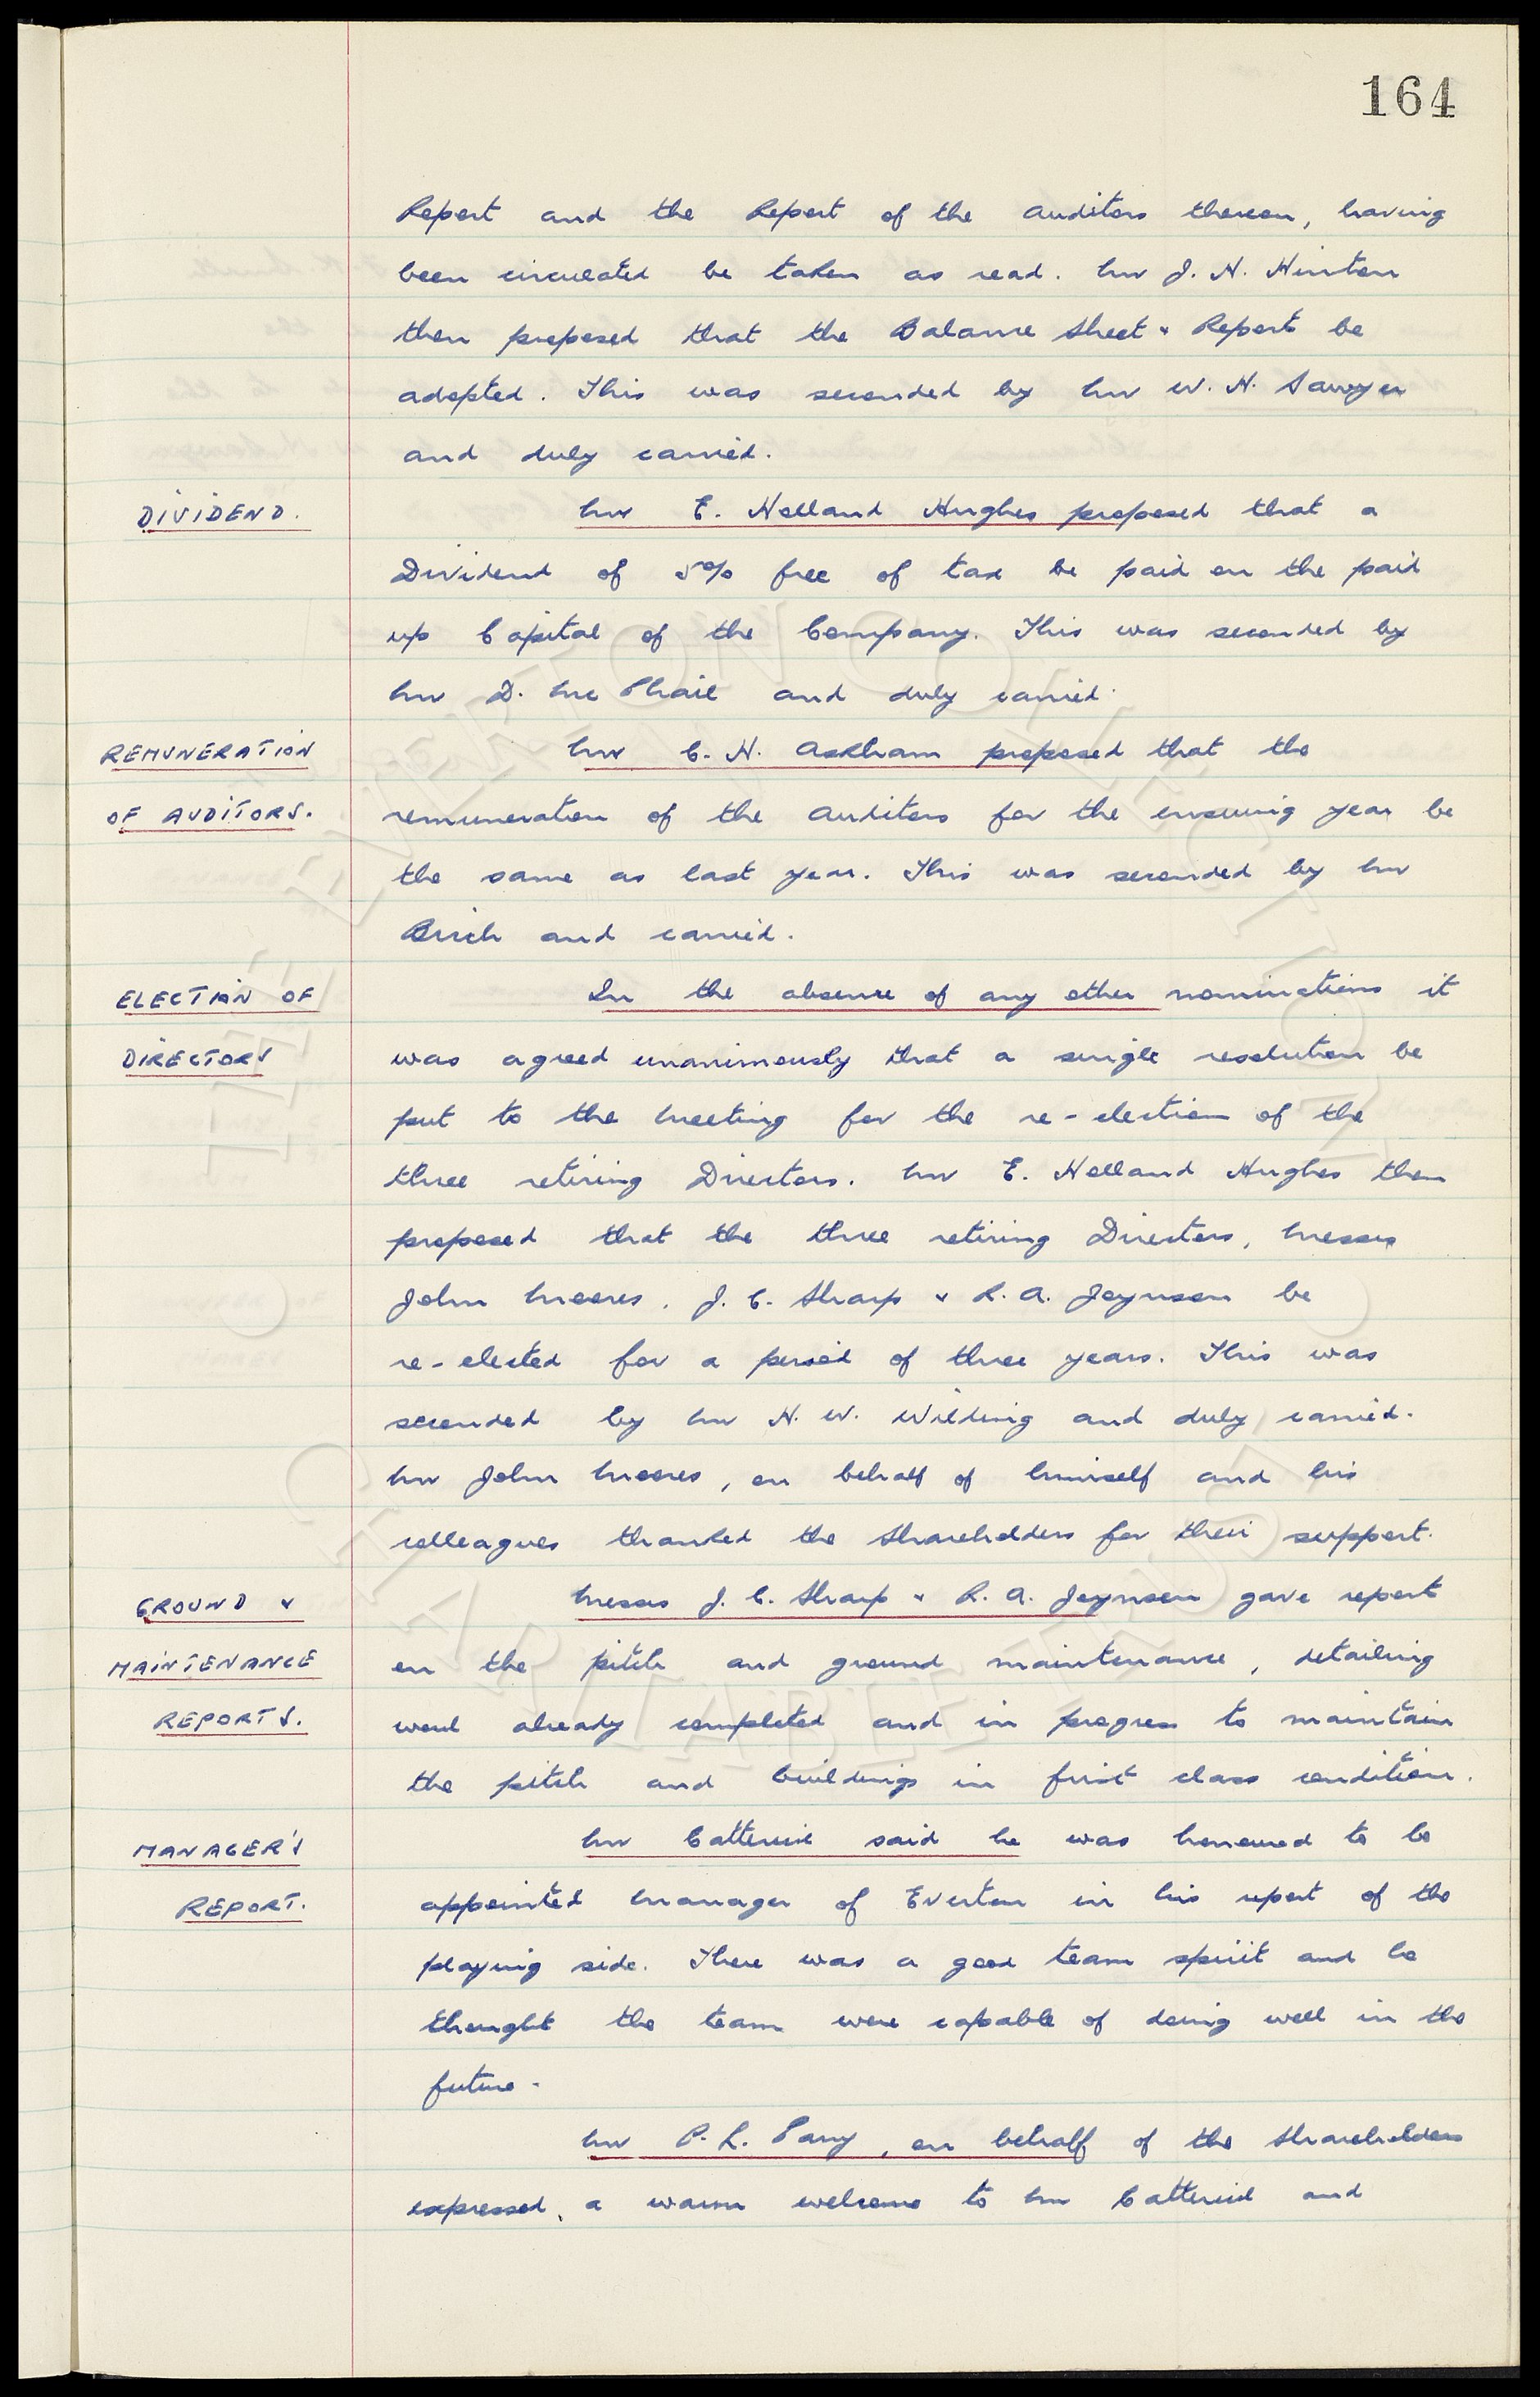 164
Report and the Report of the Auditors thereon, having
been circulated be taken as read. Mr J. H. Hinton
then proposed that the Balance Sheet & Report be
adopted. This was seconded by Mr W. H. Sawyer
and duly carried.
DIVIDEND.
Mr E. Holland Hughes proposed that a
Dividend of 5% free of tax be paid on the paid
up Capital of the Company. This was seconded by
Mr D. McPhail and duly carried.
REMUNERATION
OF AUDITORS.
Mr C. H. Askham proposed that the
remuneration of the Auditors for the ensuing year be
the same as last year. This was seconded by Mr
Birch and carried.
ELECTION OF
DIRECTORS
In the absence of any other nominations it
was agreed unanimously that a single resolution be
put to the Meeting for the re-election of the
three retiring Directors. Mr E. Holland Hughes then
proposed that the three retiring Directors, Messrs
John Moores, J. C. Sharp & R. A. Joynson be
re-elected for a period of three years. This was
seconded by Mr H. W. Wilding and duly carried.
Mr John Moores, on behalf of himself and his
colleagues thanked the Shareholders for their support.
GROUND &
MAINTENANCE
REPORTS.
Messrs J. C. Sharp & R. A. Joynson gave report
on the pitch and ground maintenance, detailing
work already completed and in progress to maintain
the pitch and buildings in first class condition.
MANAGER'S
REPORT.
Mr Catterick said he was honoured to be
appointed Manager of Everton in his report of the
playing side. There was a good team spirit and he
thought the team were capable of doing well in the
future.
Mr P. L. Parry, on behalf of the Shareholders
expressed, a warm welcome to Mr Catterick and